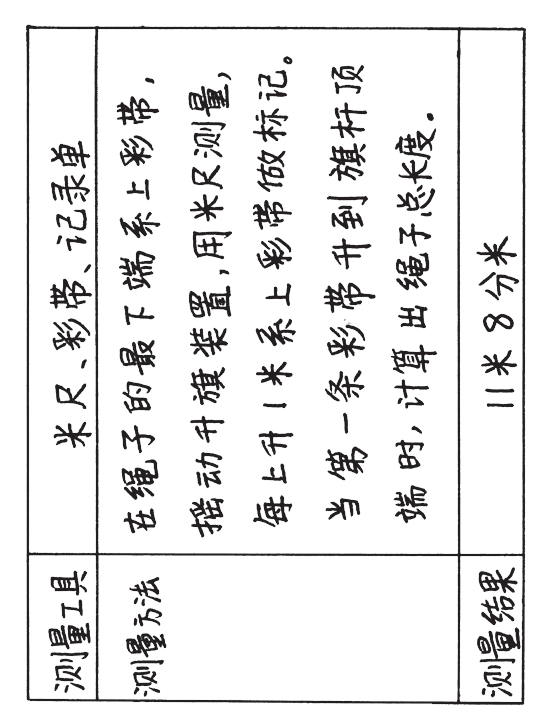 测量工具
米尺、彩带、记录单
测量方法
在绳子的最下端系上彩带，
摇动升旗装置，用米尺测量，
每上升1米系上彩带做标记。
当第一条彩带升到旗杆顶
端时，计算出绳子总长度。
测量结果
11米8分米